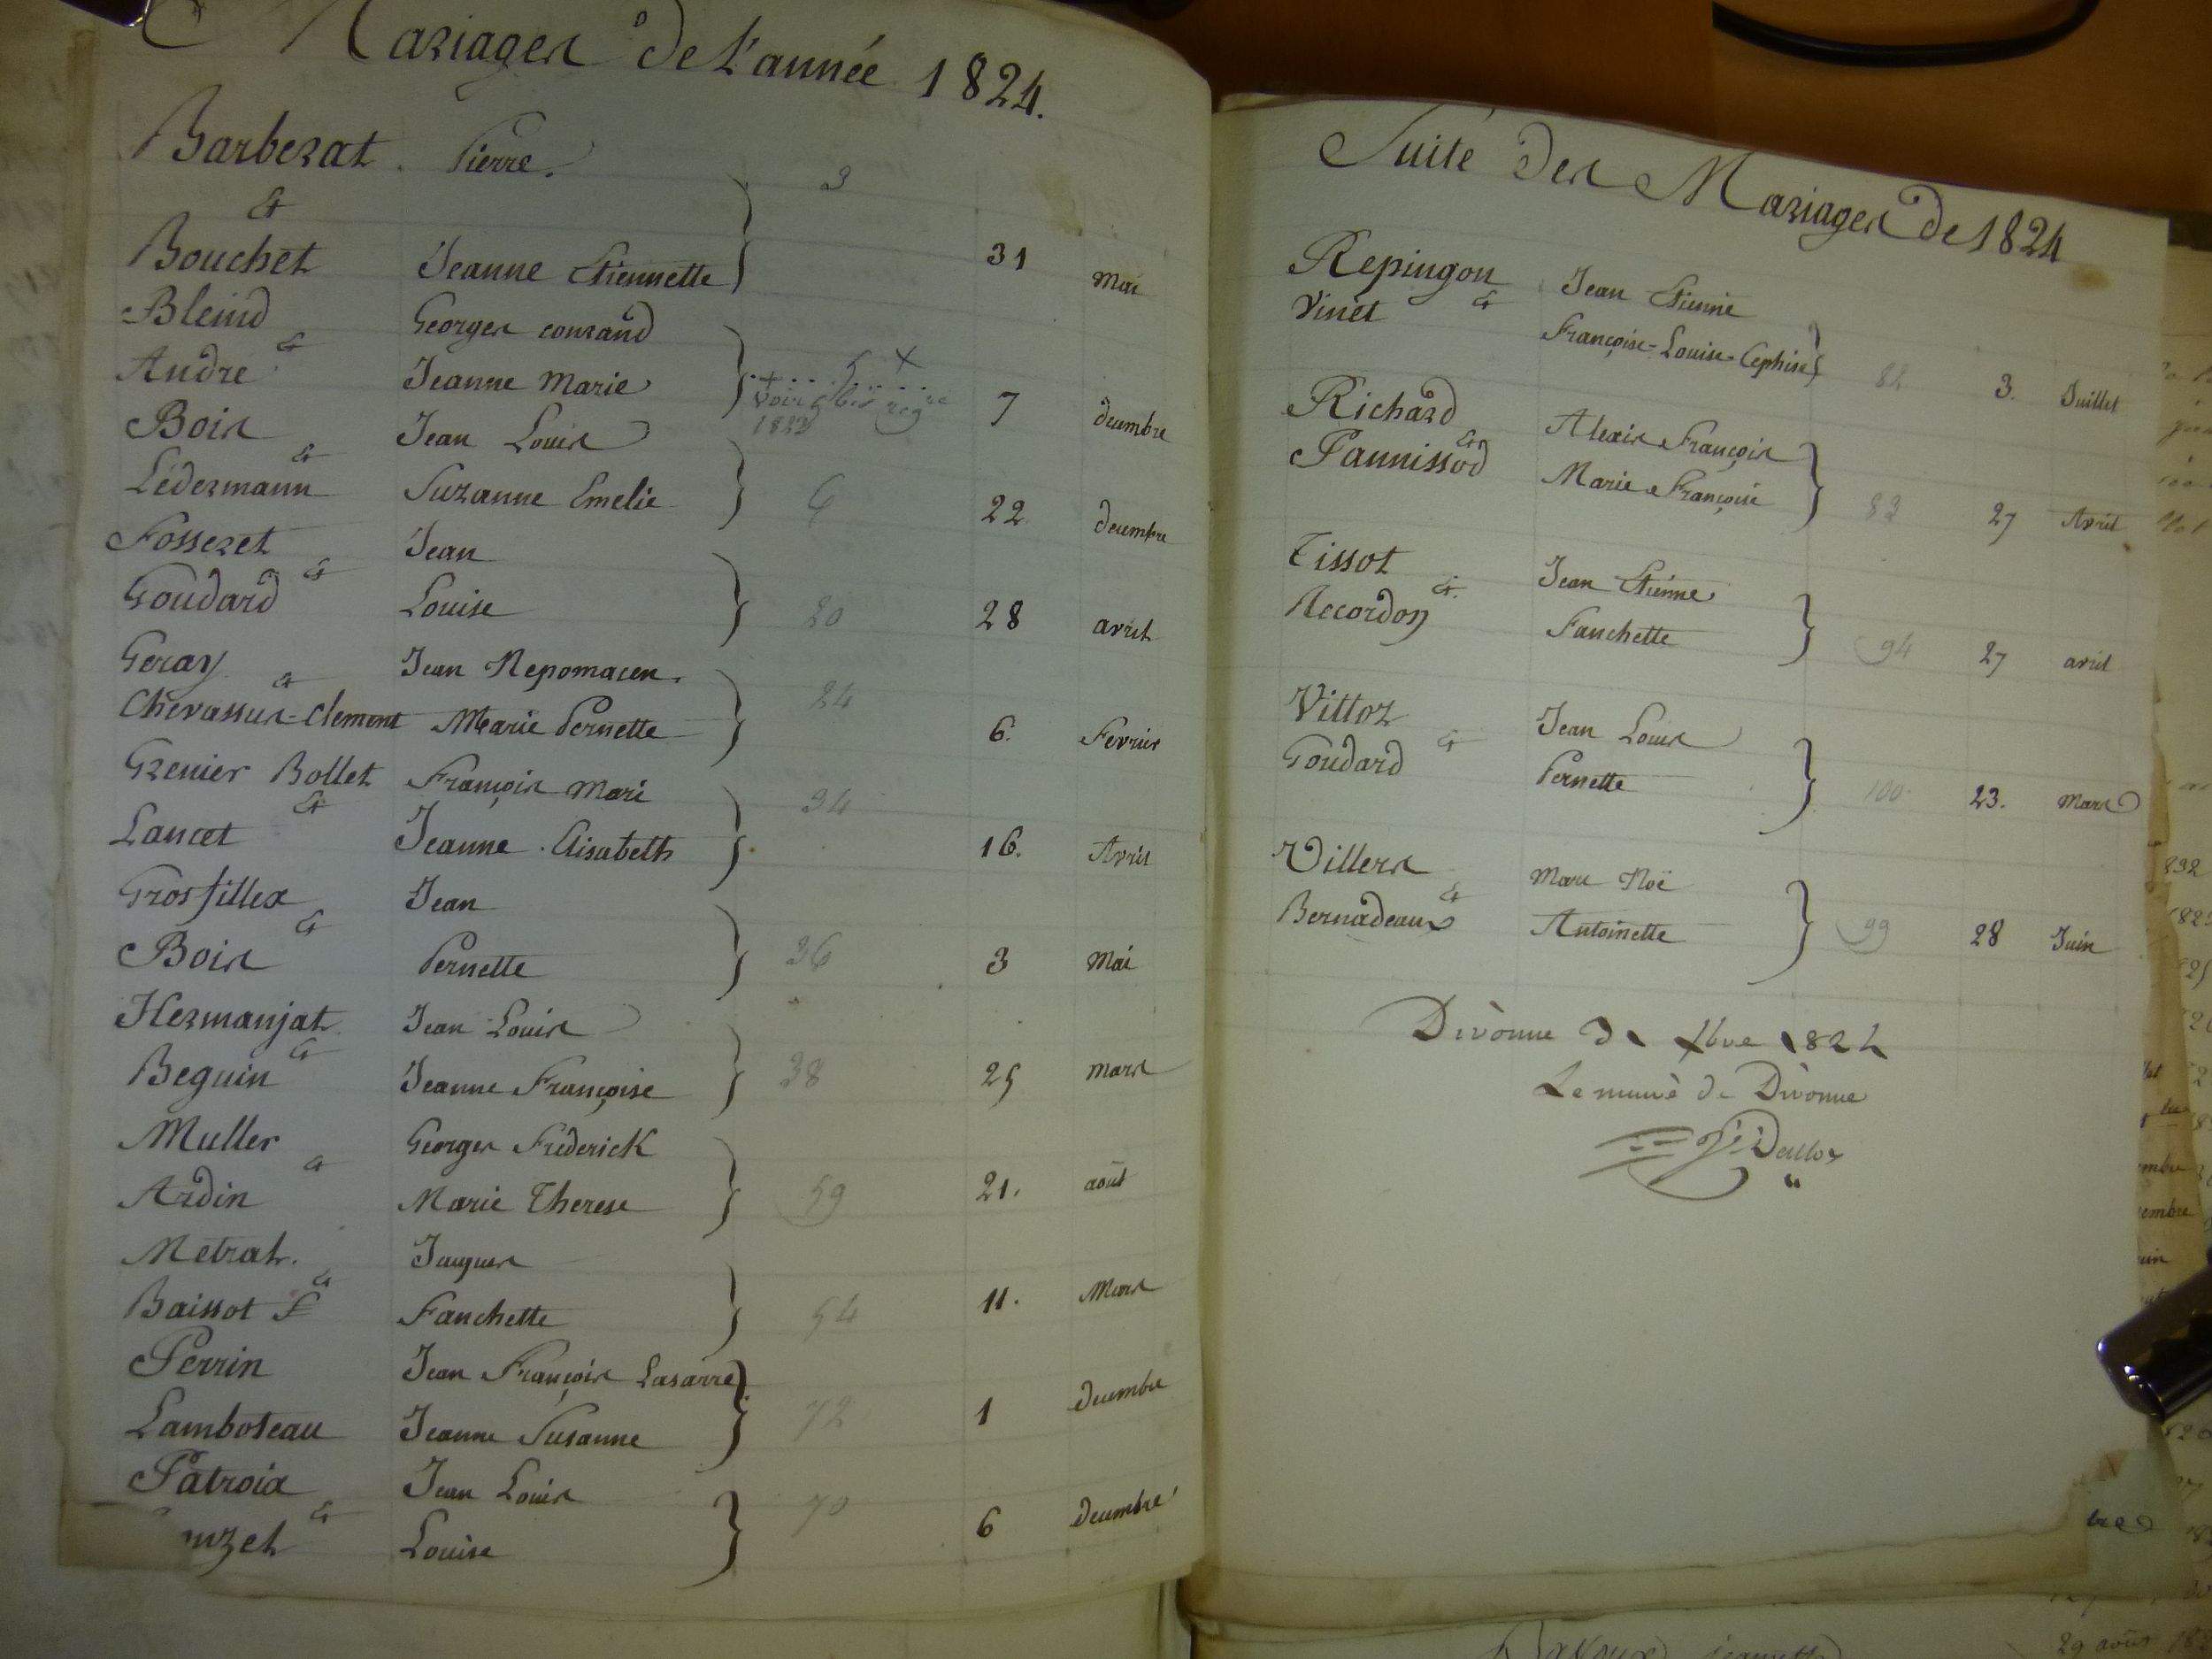 Mariages de l'année 1824.
Barberat. Pierre. 3
&
Bouchet Jeanne Etiennette 31 Mai
Bleind Georges conrand
&
André Jeanne Marie 5 × 7 decembre
voir
Bois Jean Louis
&
Lédermann Suzanne Emelie 6 22 decembre
Fosseret Jean
&
Goudard Louise 20 28 avril
Geray Jean Nepomacen.
&
Chevassus-Clement Marie Pernette 24 6. Fevrier
Grenier Bollet François Mari
&
Lancet Jeanne Elisabeth 34 16. Avril
Grosfillex Jean
&
Bois Pernette 36 3 Mai
Hermanjat Jean Louis
&
Beguin Jeanne Françoise 38 25 mars
Muller Georges Fréderick
&
Ardin Marie Therese 59 21. août
Metrat. Jaques
&
Baissot F Fanchette 54 11. Mars
Perrin Jean François Lasarre
Lamboteau Jeanne Susanne 72 1 Decembre
Patroix Jean Louis
&
uzet Louise 70 6 Decembre
Suite des Mariages de 1824
Repingon Jean Etienne
&
Vinet Françoise-Louise-Cephise 82 3. Juillet
Richard Alexis François
&
Pannissod Marie Françoise 83 27 Avril
Tissot Jean Etienne
&
Recordon Fanchette 94 27 avril
Vittoz Jean Louis
&
Goudard Pernette 100 23. Mars
Villers Marc Noë
&
Bernadeaux Antoinette 99 28 Juin
Divonne 1824
Le maire de Divonne
29 août